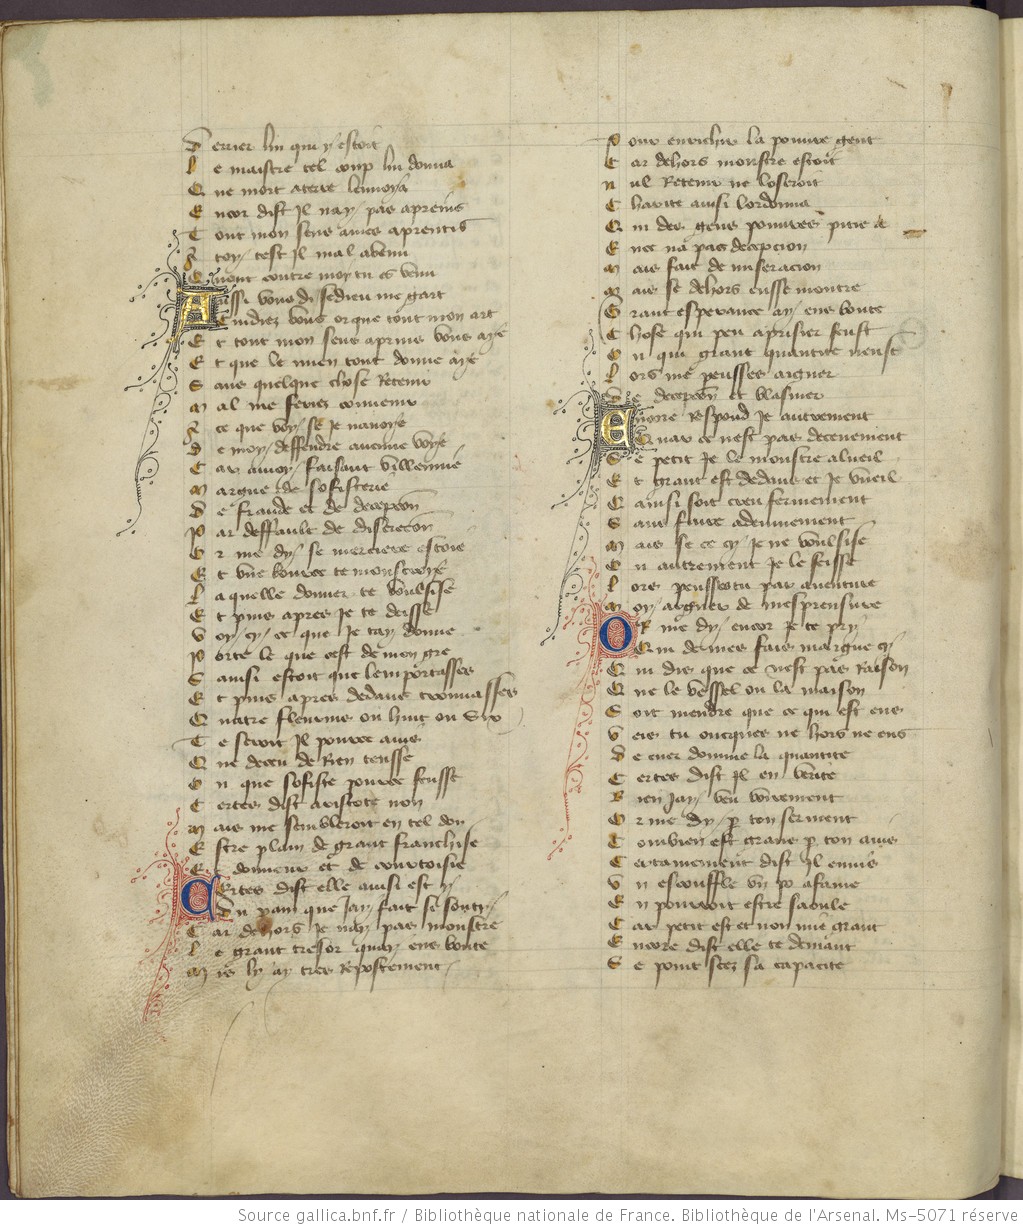 D errier lui qui y estoit
L e maistre tel coup lui donna
Q ue mort a terre lenvoya
E ncor dist Jl nay pas apreins
T out mon sens aincs aprentis
A toy cest Jl mal avenu
Quant contre moy tu es venu
Aussi vous di se dieu me gart
Cuidiez vous or que tout mon art
E t tout mon sens aprins vous aye
E t que le mien tout donne aye
S ans quelque chose Retenir
M al me feriez convenir
A ce que voy se Je navoye
D e moy deffendre aucune voye
C ar a moy faisant villennie
M argue de sofisterie
D e fraude et de decepcon
P ar deffault de discrecon
O r me dy se merciere estoie
E t une bourse te monstroye
L a quelle donner te voulsise
E t puis apres Je te deisse
V oy cy ce que Je tay donne
P orte le que cest de mon gre
S ainsi estoit que lemportasses
E t puis apres dedans trouvasses
Q uatre flourins ou huit ou Six
T e seroit Jl pource avis
Q ue deceu de Rien teusse
O u que sofiste pource feusse
C ertes dist aristote non
M ais me sembleroit en tel don
E stre plain de grant franchise
E t donneur et de courtoisie
CErtes dist elle ainsi est y
D u pain que Jay fait se soutiz
C ar dehors Je nay pas monstre
L e grant tresor quay ens boute
M is ly ay tres Repostement
P our enrichir la pouvre gent
C ar dehors monstre estoit
N ul Retenir ne loseroit
C harite ainsi lordonna
Q ui des gens pouvres pitie a
E nce na pas decepcion
M ais fait de miseracion
M ais se dehors eusse monstre
G rant esperance ay ens boute
C hose qui peu a prisier feust
O u qui grant quantite neust
L ors me peusses arguer
D e decepcon et blasmer
Encore Respond Je autrement
Quar ce nest pas decevement
S e petit Je le monstre a lueil
E t grant est dedans et Je vueil
Q ainsi soit creu fermement
S ans faire adevinement
M ais se ce cy Je ne voulsise
O u autrement Je le feisse
L ors peusses tu par aventure
M oy arguer de mesprensure
OR me dy encor Je te pry
Qui de mes fais margue cy
Q ui dis que ce nest pas Raison
Q ue le vessel ou la maison
S oit mendre que ce qui est ens
V eis tu oncques ne hors ne ens
D e cuer domme la quantite
C ertes dist Jl en verite
R ien Jay veu voirement
O r me dy p ton serment
C ombien est grans p ton avis
C ertainement dist yl ennis
V n escouffle vn po afame
E n pourroit estre saoule
C ar petit est et non mie grant
E ncore dist elle te demant
S e point scez sa capacite